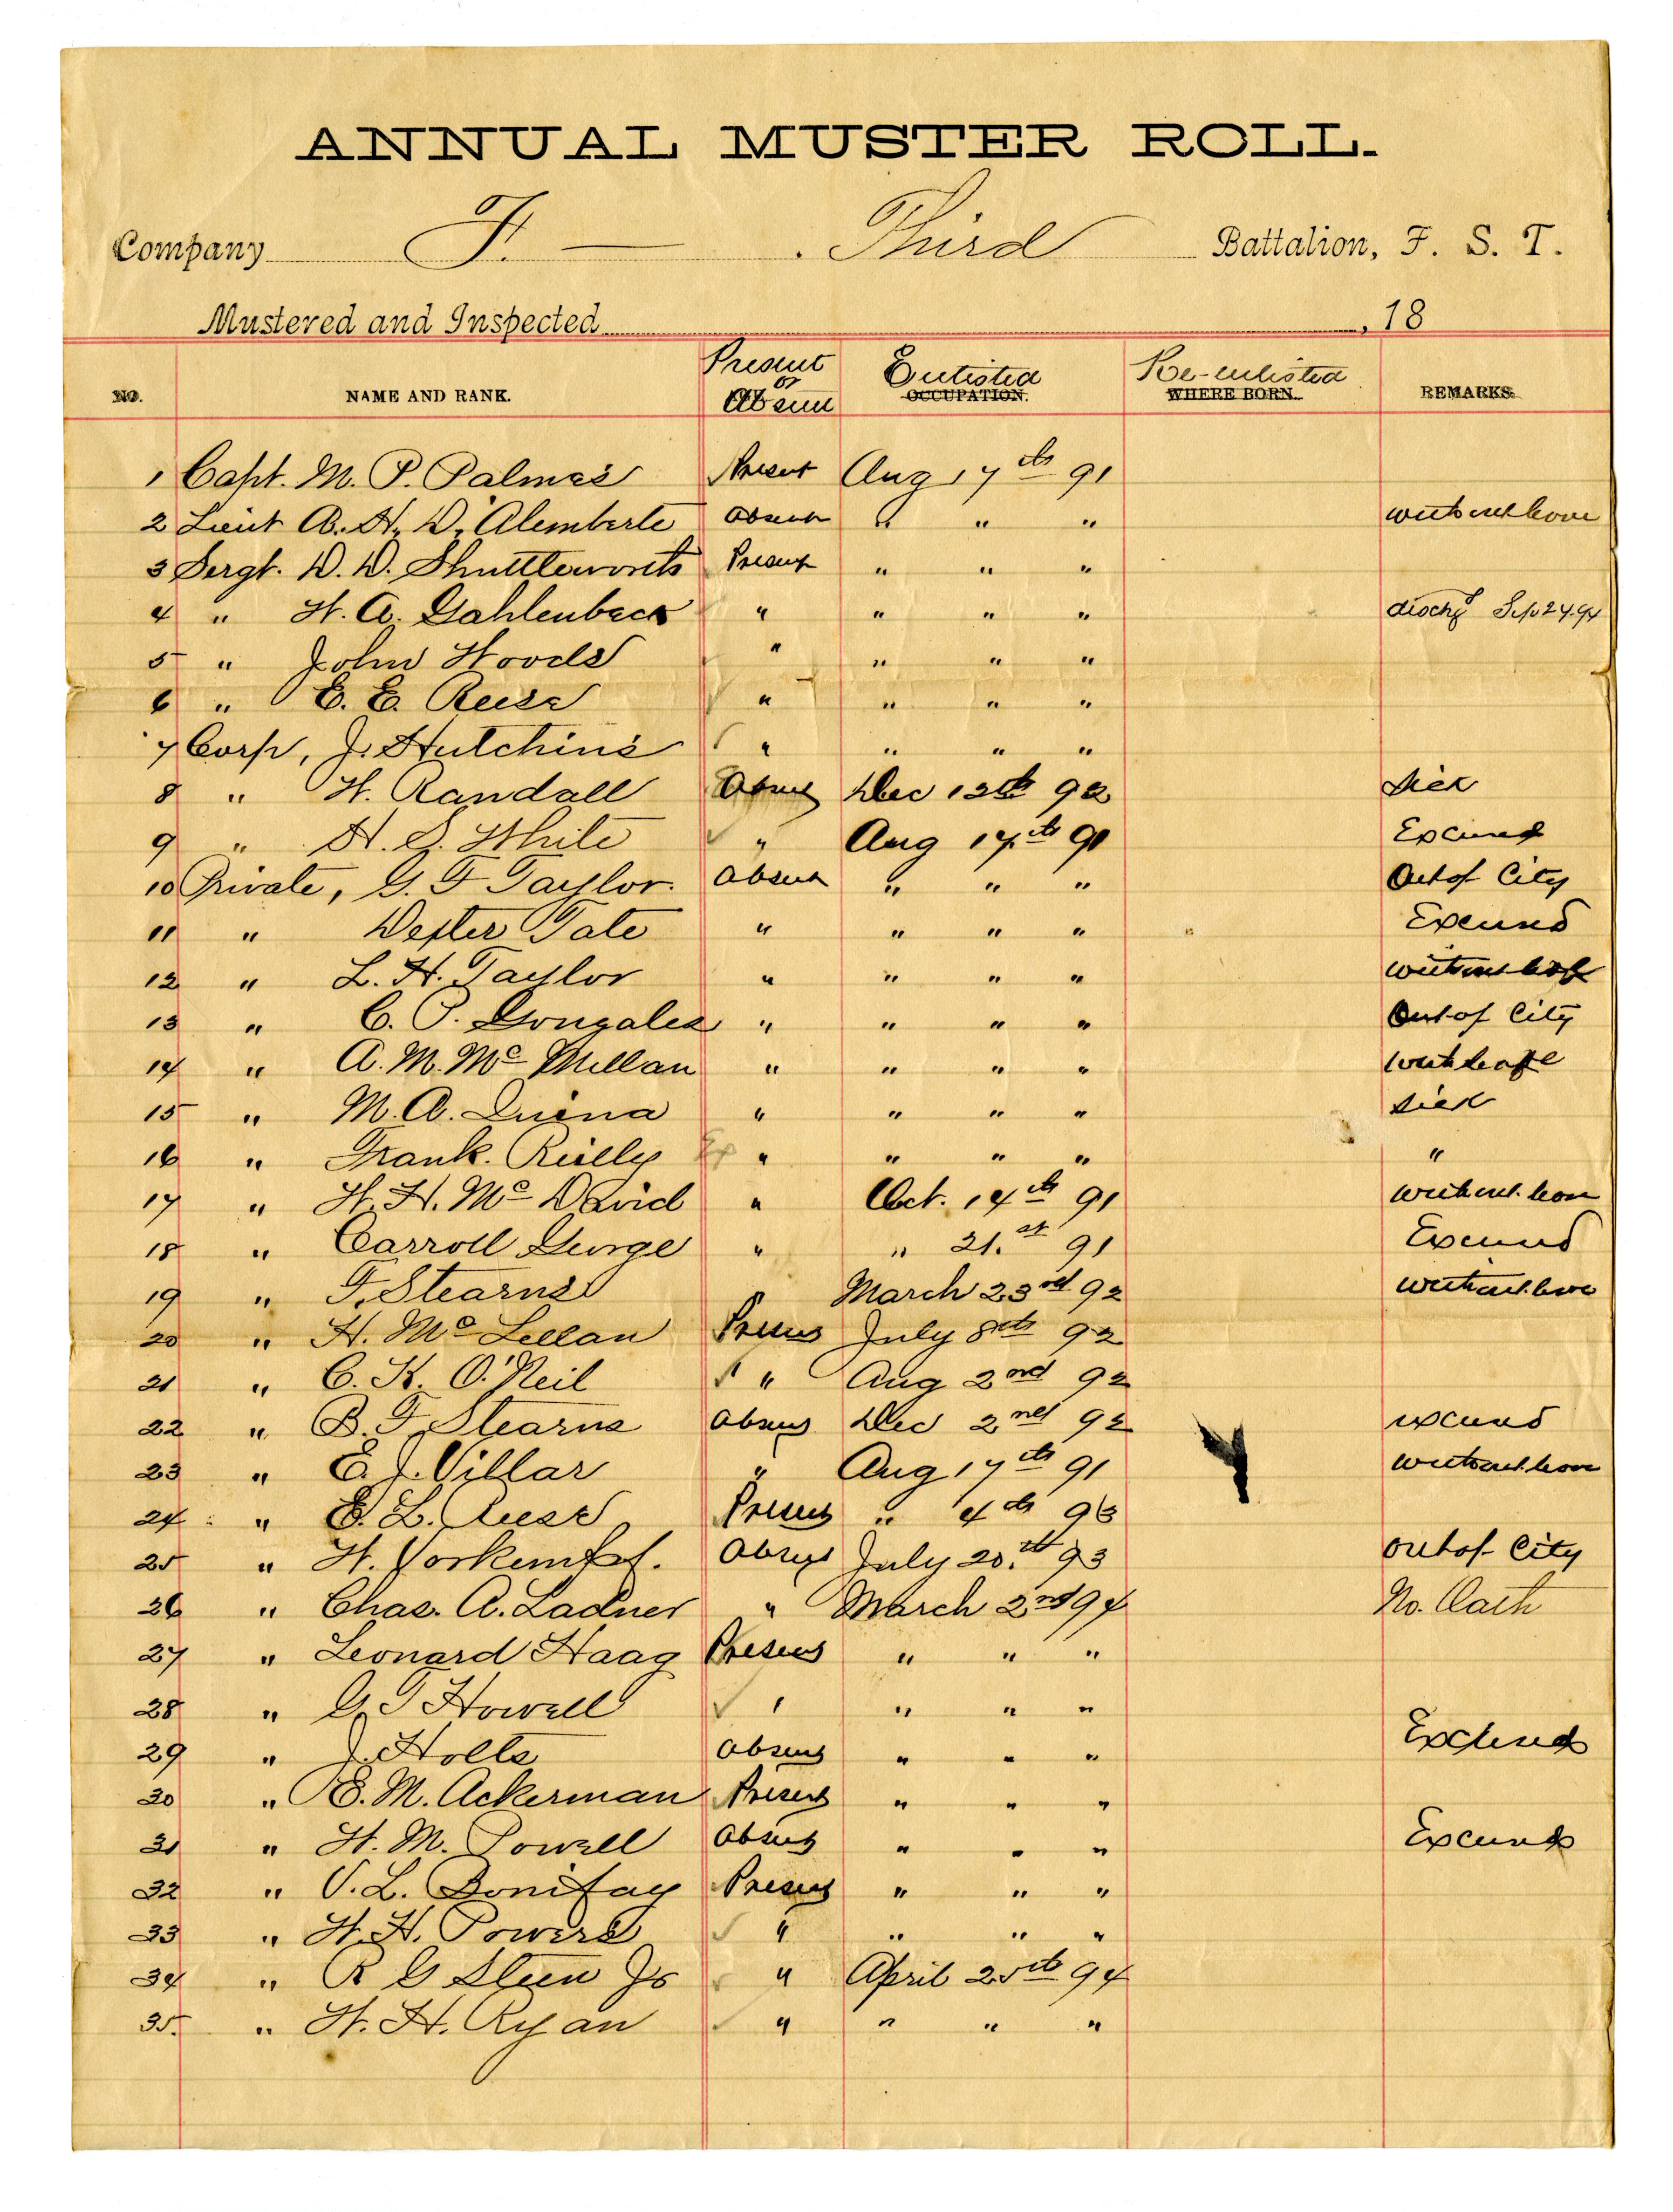 ANNUAL MUSTER ROLL.
Company F. Third Battalion, F. S. T.
Mustered and Inspected , 18
NO. NAME AND RANK. Present or Absent Enlisted OCCUPATION. Re-enlisted WHERE BORN. REMARKS.
1 Capt. M. P. Palmes Present Aug 17th 91
2 Lieut A. H. D'Alemberte Absent " " " without leave
3 Sergt. D. D. Shuttleworth Present " " "
4 " W. A. Gahlenbeck " " " " dischgd Sep 24. 94
5 " John Woods " " " "
6 " E. E. Reese " " " "
7 Corp, J. Hutchins " " " "
8 " W. Randall Absent Dec 12th 92 Sick
9 " H. S. White " Aug 17th 91 Excused
10 Private, G. F Taylor. Absent " " " Out of City
11 " Dexter Tate " " " " Excused
12 " L. H. Taylor " " " " without leave
13 " C. P. Gonzales " " " " Out of City
14 " A. M. Mc Millan " " " "
15 " M. A. Quina " " " " Sick
16 " Frank. Reilly Ex " " " " "
17 " W. H. Mc David " Oct. 14th 91 without leave
18 " Carroll George " " 21.st 91 Excused
19 " F. Stearns " March 23rd 92 without leave
20 " H. Mc Lellan Present July 8th 92
21 " C. K. O'Neil " Aug 2nd 92
22 " B. F. Stearns Absent Dec 2nd 92 excused
23 " E. J. Villar " Aug 17th 91 without leave
24 " E. L. Reese Present " 4th 93
25 " W. Vorkempf. Absent July 20.th 93 out of City
26 " Chas. A. Ladner " March 2nd 94 No. Oath
27 " Leonard Haag Present " " "
28 " G. T Howell " " " "
29 " J. Holts Absent " " " Excused
30 " E. M. Ackerman Present " " "
31 " W. M. Powell Absent " " " Excused
32 " V. L. Bonifay Present " " "
33 " W. H. Powers " " " "
34 " R G Steen Jr " April 25th 94
35. " W. H. Ryan " " " "